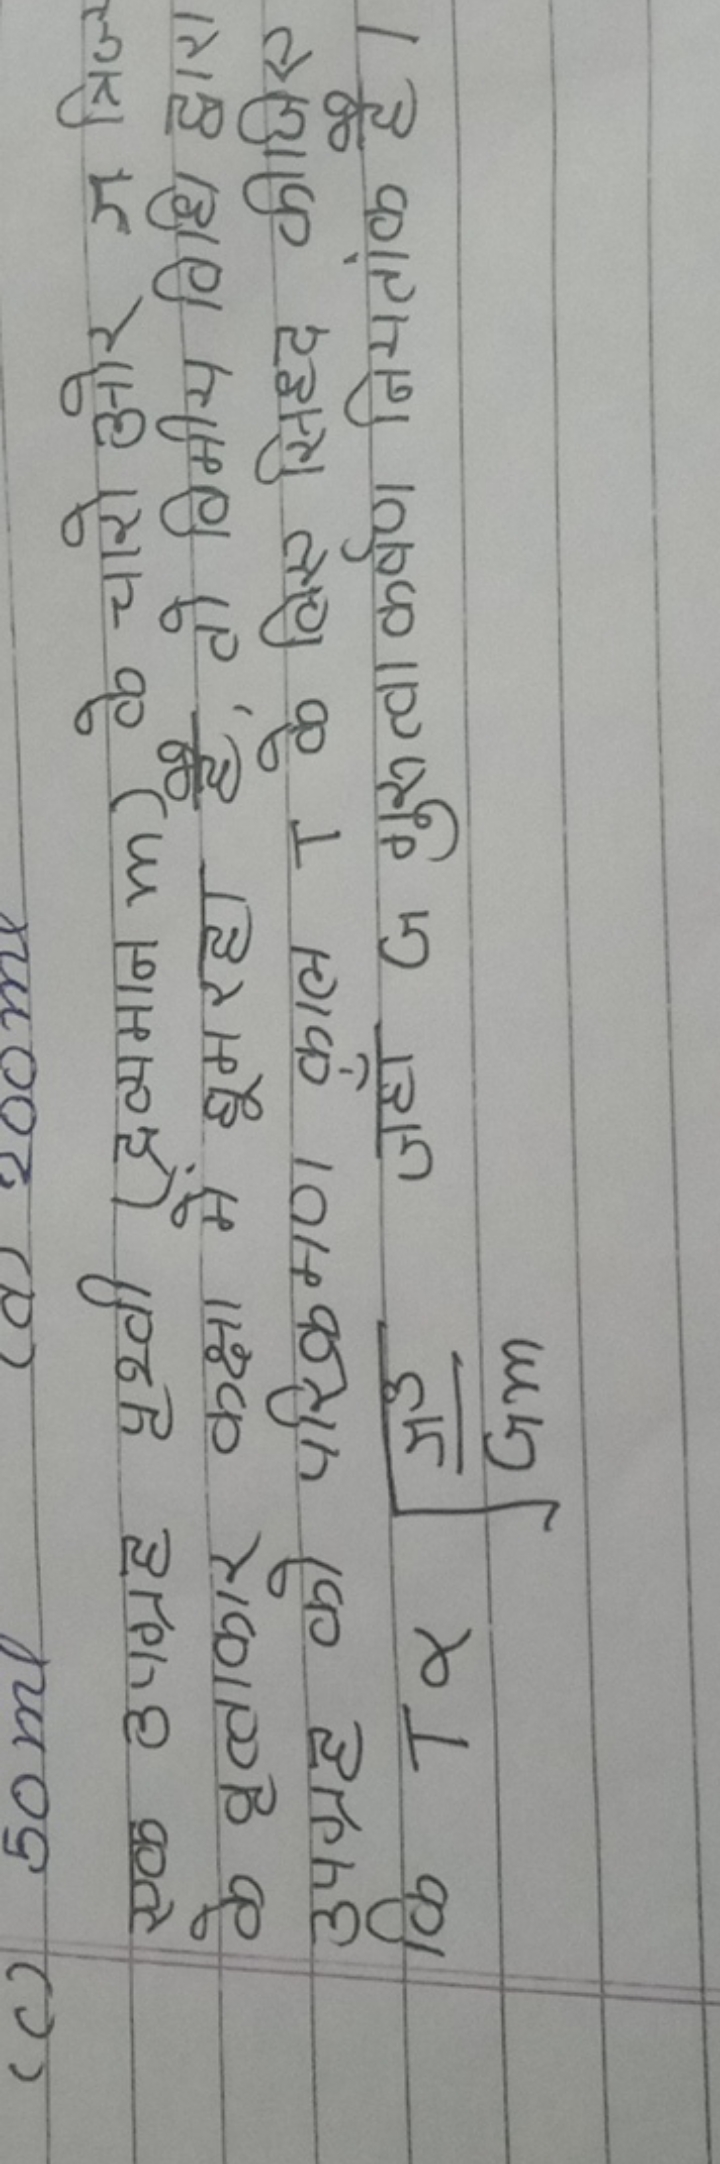 (c) 50ml (d) 200ml
एक उपग्रह पृथ्वी (द्रव्यमान m) के चारो ओर r
के वृत्ताकार कक्षा में घूम रहा है, तो विमीय विधि द्वारा
उपग्रह को परिक्रमण काल T के लिए सिद्द कीजिए
कि T ∝ √(r³/Gm) जहा G गुरुत्वाकर्षण नियतांक है।